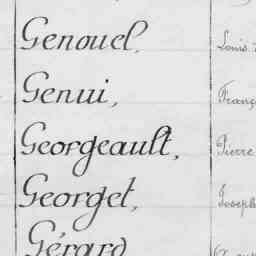 Genouel, Louis
Genui, Franç
Georgeault, Pierre
Georget, Joseph
Gérard